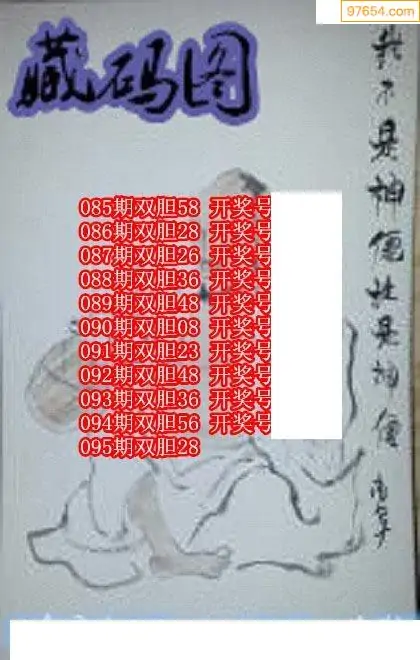 97654.com
藏码图
085期双胆58 开奖号
086期双胆28 开奖号
087期双胆26 开奖号
088期双胆36 开奖号
089期双胆48 开奖号
090期双胆08 开奖号
091期双胆23 开奖号
092期双胆48 开奖号
093期双胆36 开奖号
094期双胆56 开奖号
095期双胆28
不是神仙
是神仙